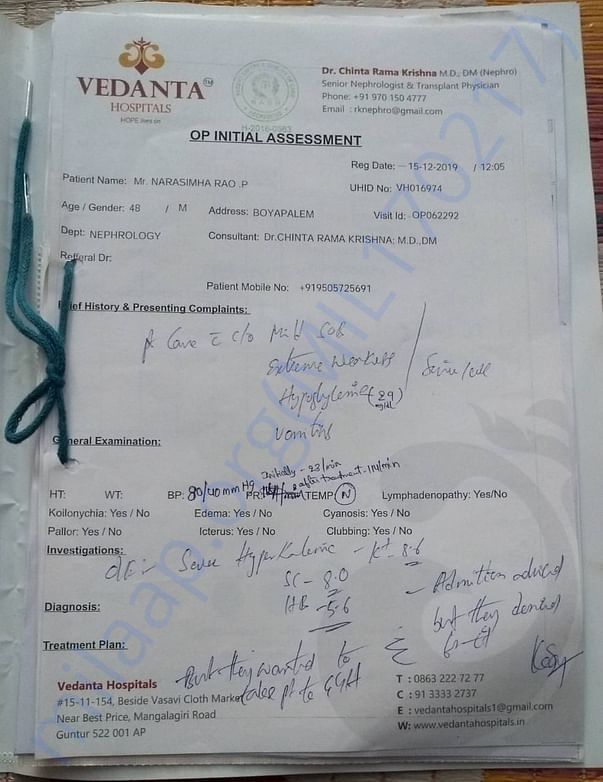 VEDANTA
HOSPITALS
HOPE lives on
Dr. Chinta Rama Krishna M.D., DM (Nephro)
Senior Nephrologist & Transplant Physician
Phone: +91 970 150 4777
Email : rknephro@gmail.com
H-2016-0363
OP INITIAL ASSESSMENT
Reg Date: - 15-12-2019 / 12:05
Patient Name: Mr. NARASIMHA RAO .P
UHID No: VH016974
Age / Gender: 48 / M Address: BOYAPALEM Visit Id: OP062292
Dept: NEPHROLOGY Consultant: Dr.CHINTA RAMA KRISHNA; M.D.,DM
Refferal Dr:
Patient Mobile No: +919505725691
Brief History & Presenting Complaints:
pt came c c/o Mild SOB
Extreme Weakness
Hypoglycemia (29 mg/dL)
vomiting
General Examination:
Initially - 23/min
after treatment - 114/min
HT: WT: BP: 80/40 mmHg PR: TEMP: N Lymphadenopathy: Yes/No
Koilonychia: Yes / No Edema: Yes / No Cyanosis: Yes / No
Pallor: Yes / No Icterus: Yes / No Clubbing: Yes / No
Investigations:
Severe Hyperkalemic - K+ - 8.6
SC - 8.0
HB - 5.6
- Admission advised
but they denied
Diagnosis:
Treatment Plan:
But they wanted to
take pt to GGH
Vedanta Hospitals
#15-11-154, Beside Vasavi Cloth Market
Near Best Price, Mangalagiri Road
Guntur 522 001 AP
T : 0863 222 72 77
C : 91 3333 2737
E : vedantahospitals1@gmail.com
W: www.vedantahospitals.in
milaap.org